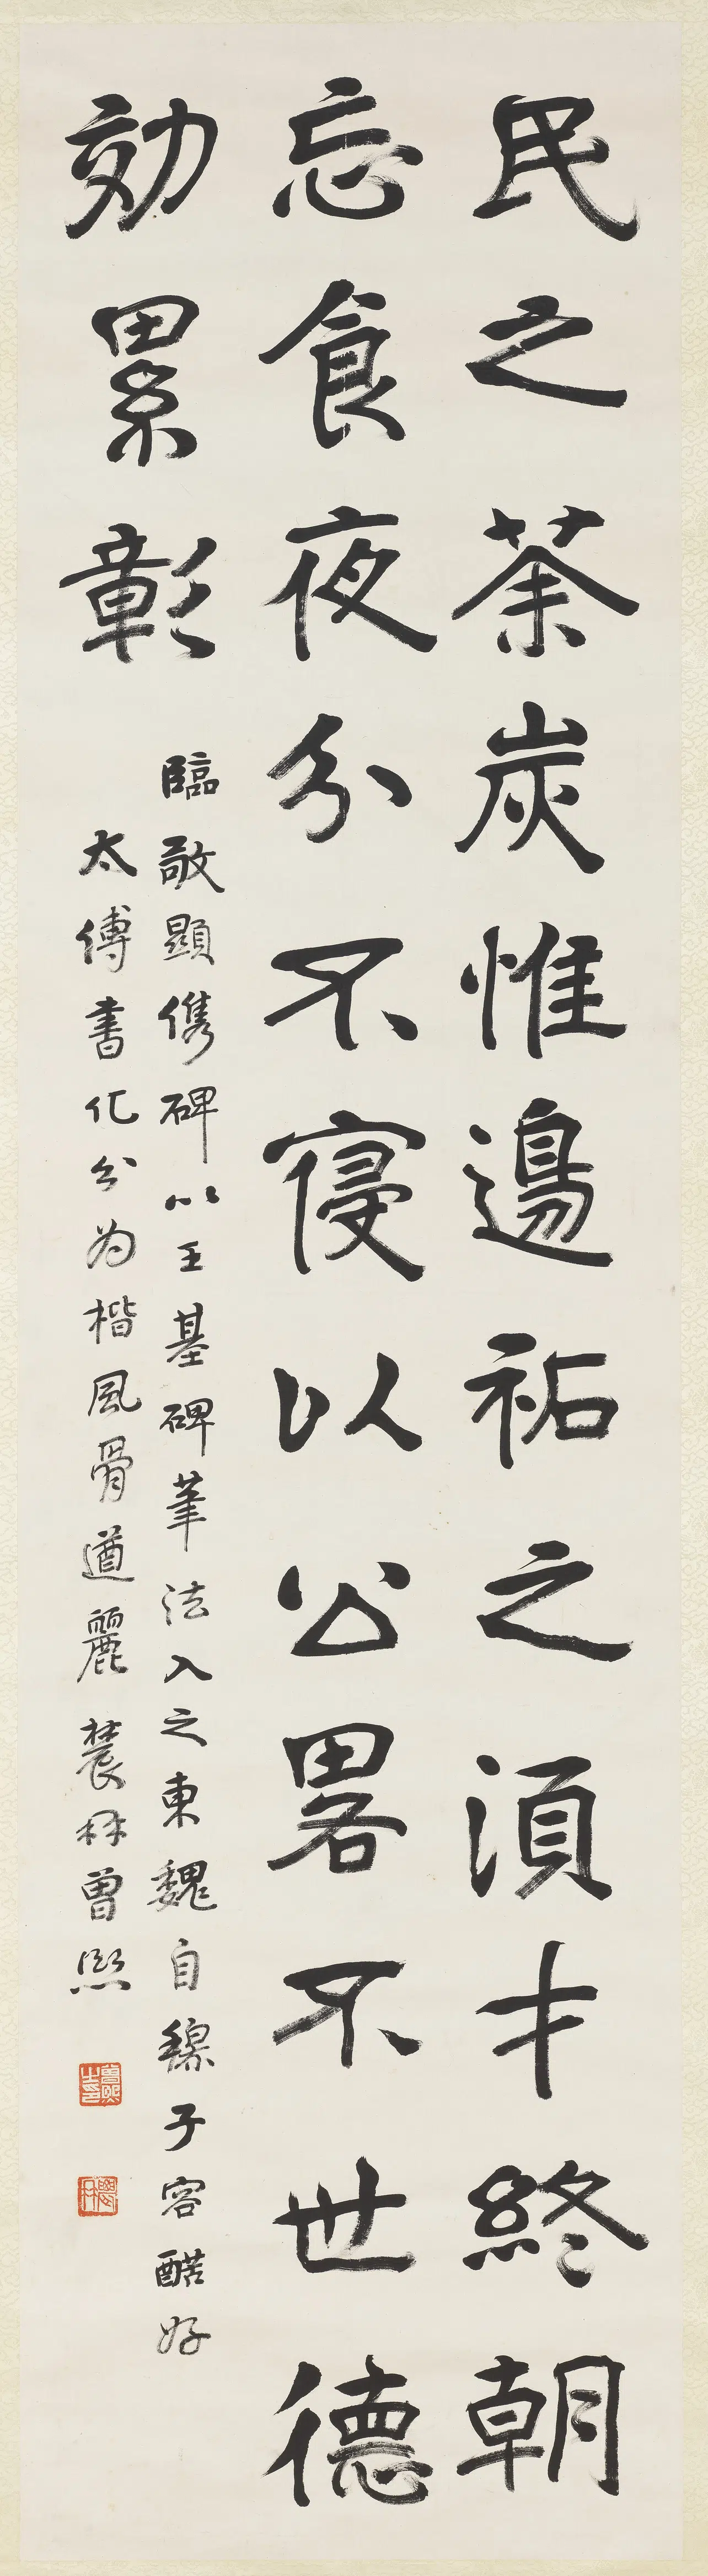 民之荼炭惟邊祏之湏才終朝
忘食夜分不寑以公畧不世德
効累彰
臨敬顯儁碑以王基碑筆法入之東魏自穆子容酷好
太傅書化分为楷風骨遒麗農髯曾熙